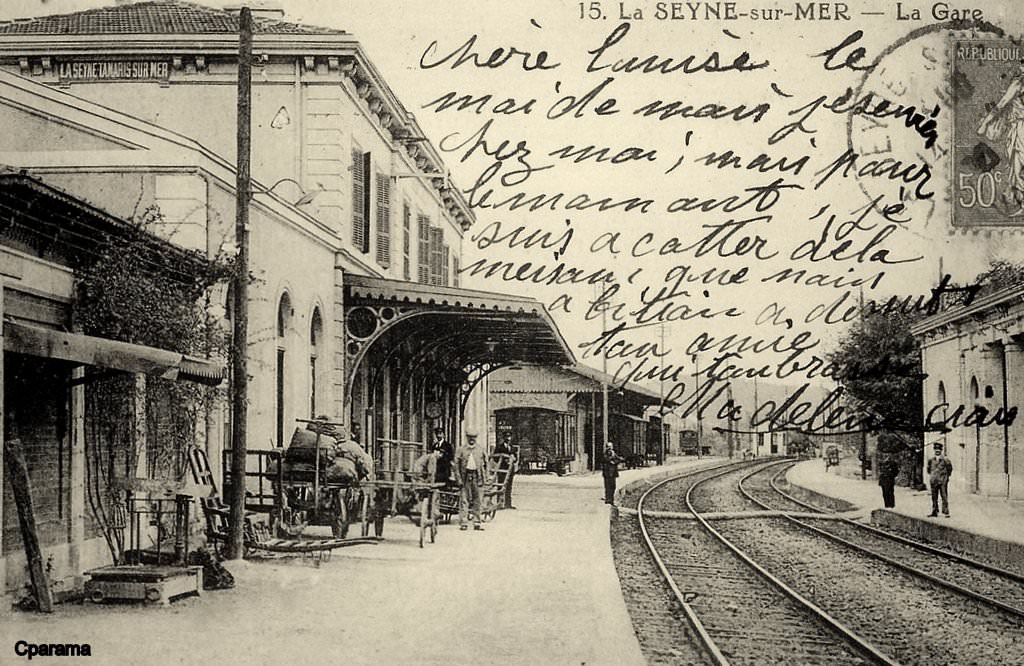 15. La SEYNE-sur-MER — La Gare
LA SEYNE-TAMARIS SUR MER
chère Louise le
moi de mars je serai
chez moi, mais pour
le mamant, je
suis a cotter de la
meison que nous
abition
ton amie
qui t'anbrasse
Madeleine
REPUBLIQUE
50c
SEYNE
Cparama